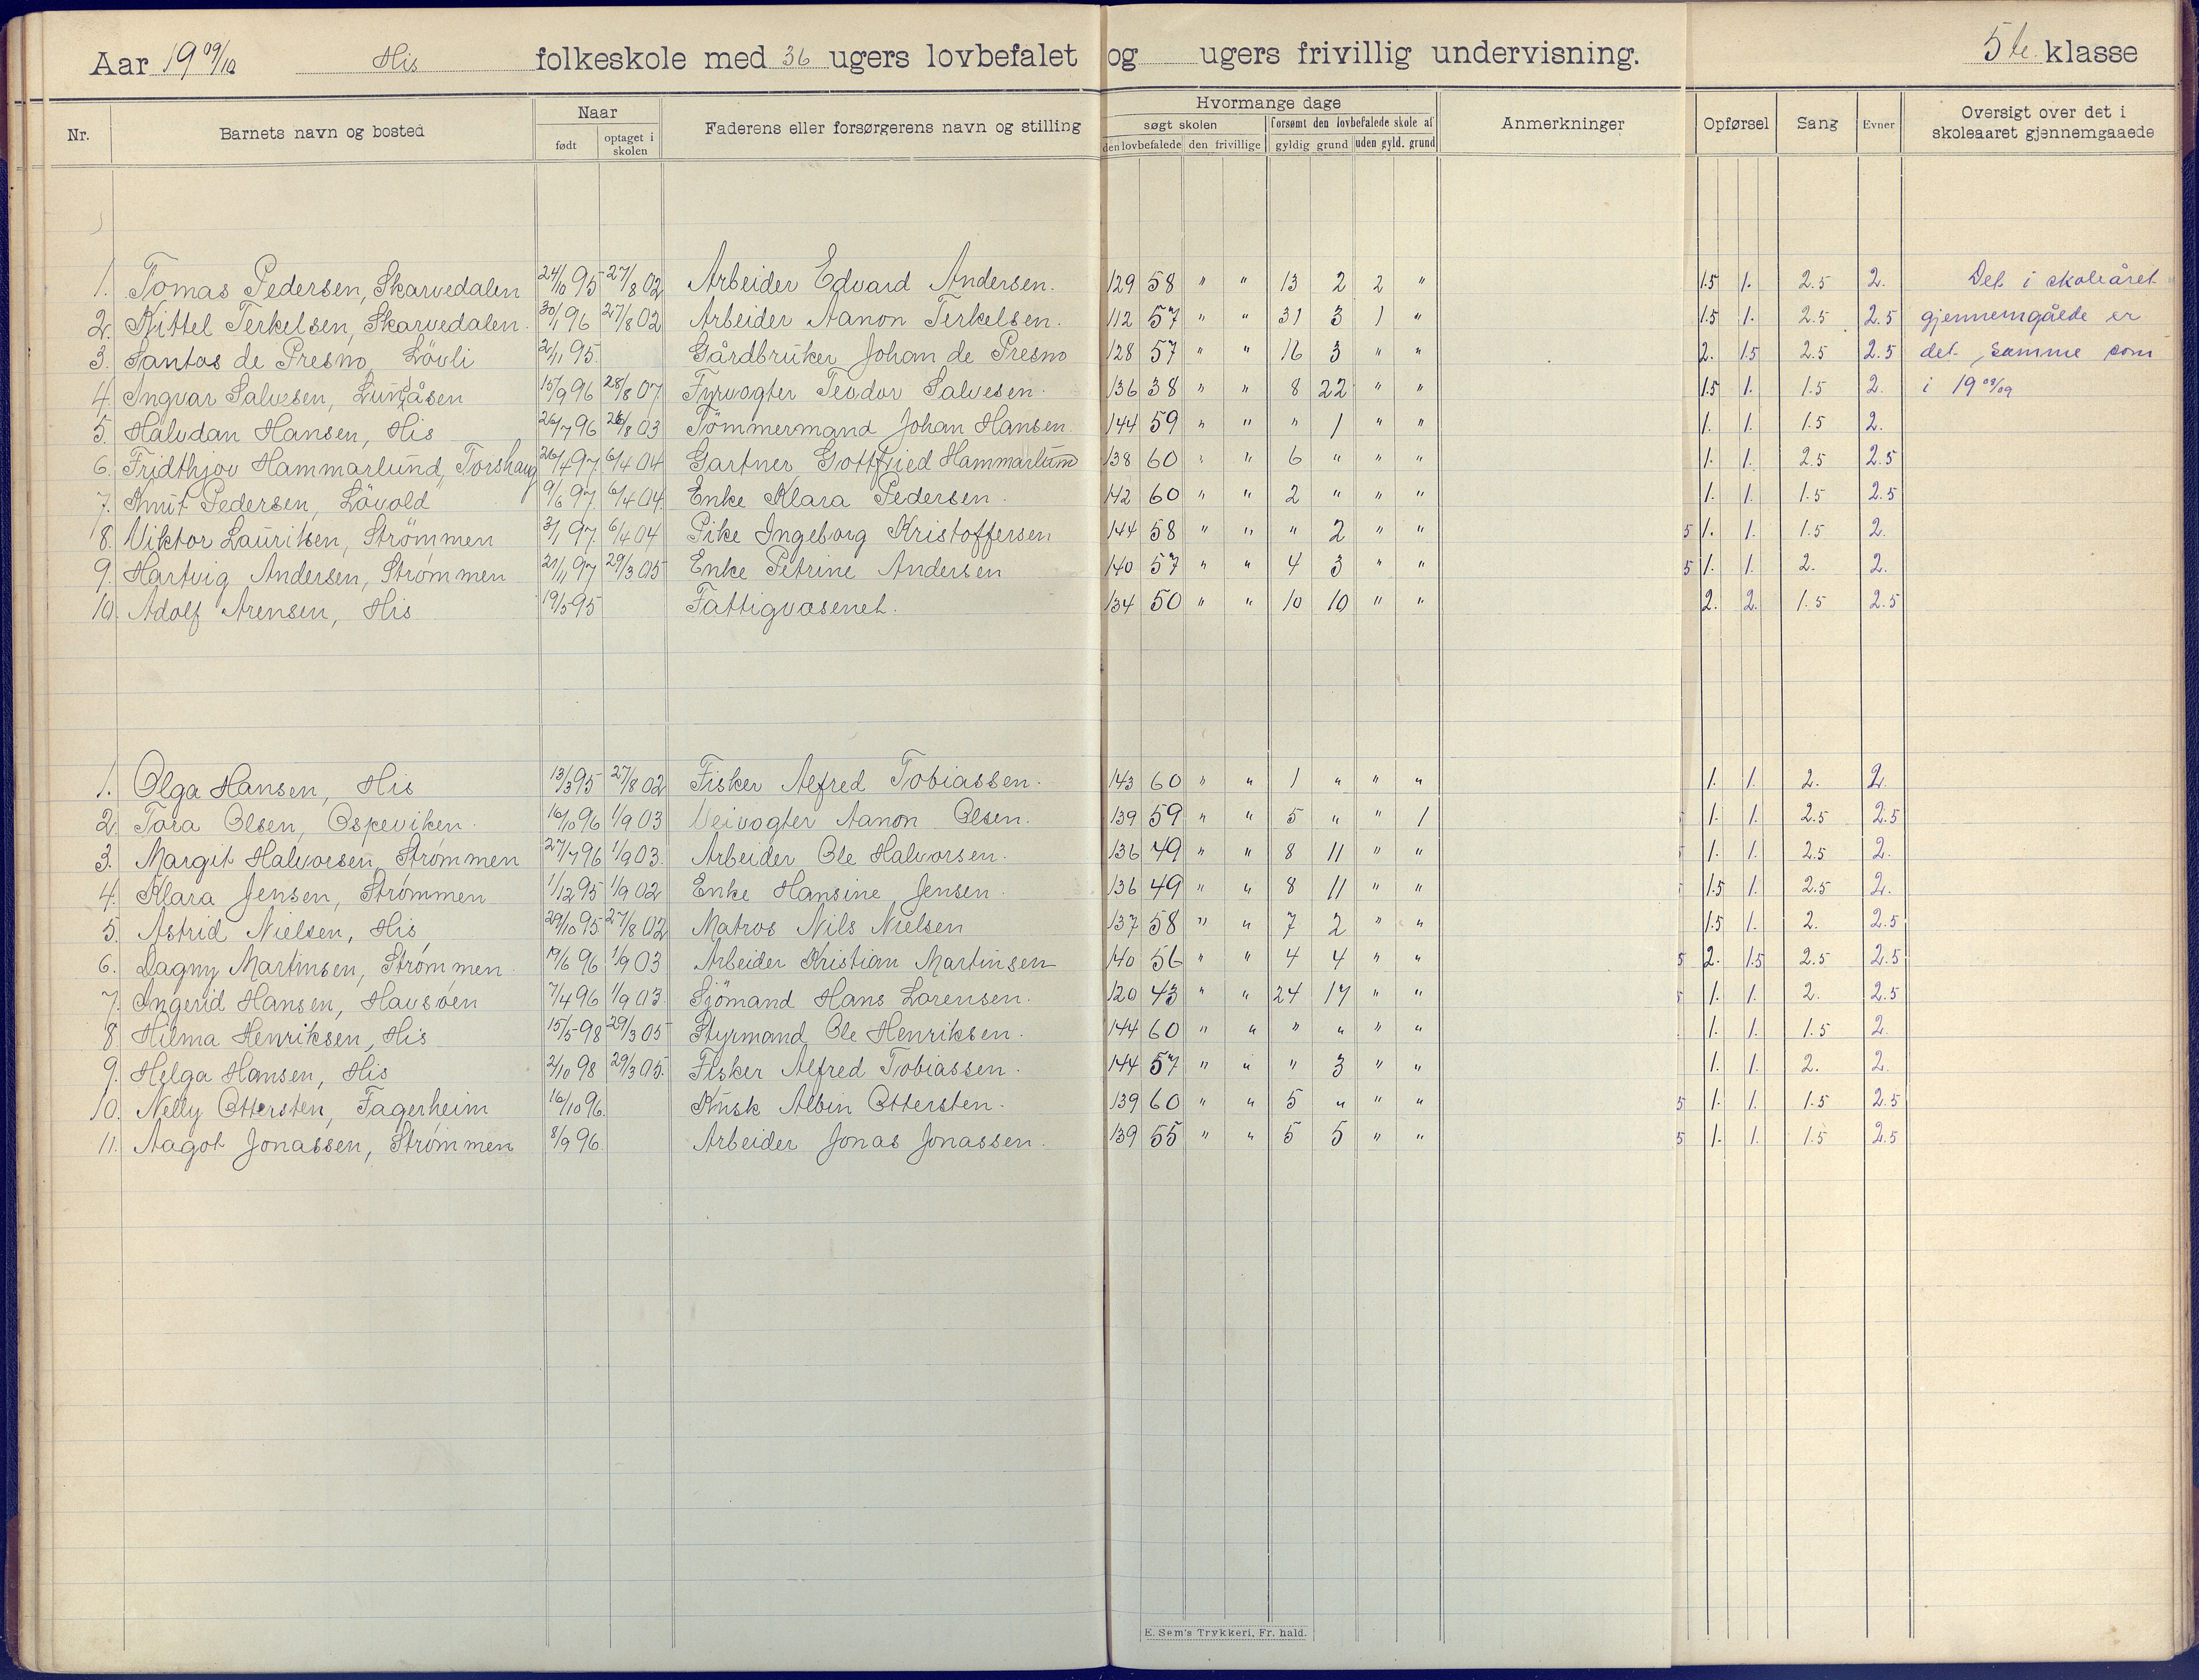 Aar 19 09/10 His folkeskole med 36 ugers lovbefalet og ugers frivillig undervisning. 5te klasse
Nr. Barnets navn og bosted Naar født optaget i skolen Faderens eller forsørgerens navn og stilling Hvormange dage søgt skolen den lovbefalede den frivillige forsømt den lovbefalede skole af gyldig grund uden gyld. grund Anmerkninger Opførsel Sang Evner Oversigt over det i skoleaaret gjennemgaaede
1. Tomas Pedersen, Skarvedalen 24/10 95 27/8 02 Arbeider Edvard Andersen. 129 58 " " 13 2 2 " 1.5 1. 2.5 2. Det i skoleåret
2. Kittel Terkelsen, Skarvedalen. 30/1 96 27/8 02 Arbeider Aanon Terkelsen. 112 57 " " 31 3 1 " 1.5 1. 2.5 2.5 gjennemgåede er
3. Santos de Presno, Lövli 2/11 95. Gårdbruker Johan de Presno 128 57 " " 16 3 " " 2. 1.5 2.5 2.5 det samme som
4. Ingvar Salvesen, Lundåsen 15/9 96 28/8 07 Fyrvogter Teodor Salvesen. 136 38 " " 8 22 " " 1.5 1. 1.5 2. i 19 08/09
5. Halvdan Hansen, His 26/7 96 26/8 03 Tömmermand Johan Hansen 144 59 " " " 1 " " 1. 1. 1.5 2.
6. Fridthjov Hammarlund, Torshaug 26/4 97. 6/4 04 Gartner Gottfried Hammarlund 138 60 " " 6 " " " 1. 1. 2.5 2.5
7. Knut Pedersen, Lövold 9/6 97. 6/4 04. Enke Klara Pedersen. 142 60 " " 2 " " " 1. 1. 1.5 2.5
8. Viktor Lauritsen, Strömmen 3/1 97. 6/4 04 Pike Ingeborg Kristoffersen 144 58 " " " 2 " " 5 1. 1. 1.5 2.
9. Hartvig Andersen, Strømmen 21/11 97 29/3 05 Enke Petrine Andersen 140 57 " " 4 3 " " 5 1. 1. 2. 2.
10. Adolf Arensen, His 19/5 95 Fattigvæsenet. 134 50 " " 10 10 " " 2. 2. 1.5 2.5
1. Olga Hansen, His 13/3 95 27/8 02 Fisker Alfred Tobiassen. 143 60 " " 1 " " " 1. 1. 2. 2.
2. Tora Olsen, Ospeviken. 16/10 96 1/9 03 Veivogter Aanon Olsen. 139 59 " " 5 " " 1 1. 1. 2.5 2.5
3. Margit Halvorsen, Strømmen 27/7 96 1/9 03. Arbeider Ole Halvorsen. 136 49 " " 8 11 " " 1. 1. 2.5 2.
4. Klara Jensen, Strømmen 1/12 95 1/9 02 Enke Hansine Jensen. 136 49 " " 8 11 " " 1.5 1. 2.5 2.
5. Astrid Nielsen, His 29/10 95 27/8 02 Matros Nils Nielsen 137 58 " " 7 2 " " 1.5 1. 2. 2.5
6. Dagny Martinsen, Strømmen. 19/6 96 1/9 03 Arbeider Kristian Martinsen 140 56 " " 4 4 " " 5 2. 1.5 2.5 2.5
7. Ingerid Hansen, Havsøen 7/4 96 1/9 03. Sjömand Hans Lorensen. 120 43 " " 24 17 " " 1. 1. 2. 2.5
8. Hilma Henriksen, His 15/5 98 29/3 05 Styrmand Ole Henriksen. 144 60 " " " " " " 1. 1. 1.5 2.
9. Helga Hansen, His 2/10 98 29/3 05. Fisker Alfred Tobiassen. 144 57 " " " 3 " " 1. 1. 2. 2.
10. Nelly Ottersten, Fagerheim 16/10 96. Kusk Albin Ottersten. 139 60 " " 5 " " " 5 1. 1. 1.5 2.5
11. Aagot Jonassen, Strømmen 8/9 96. Arbeider Jonas Jonassen. 139 55 " " 5 5 " " 5 1. 1. 1.5 2.5
E. Sem's Trykkeri, Fr. hald.